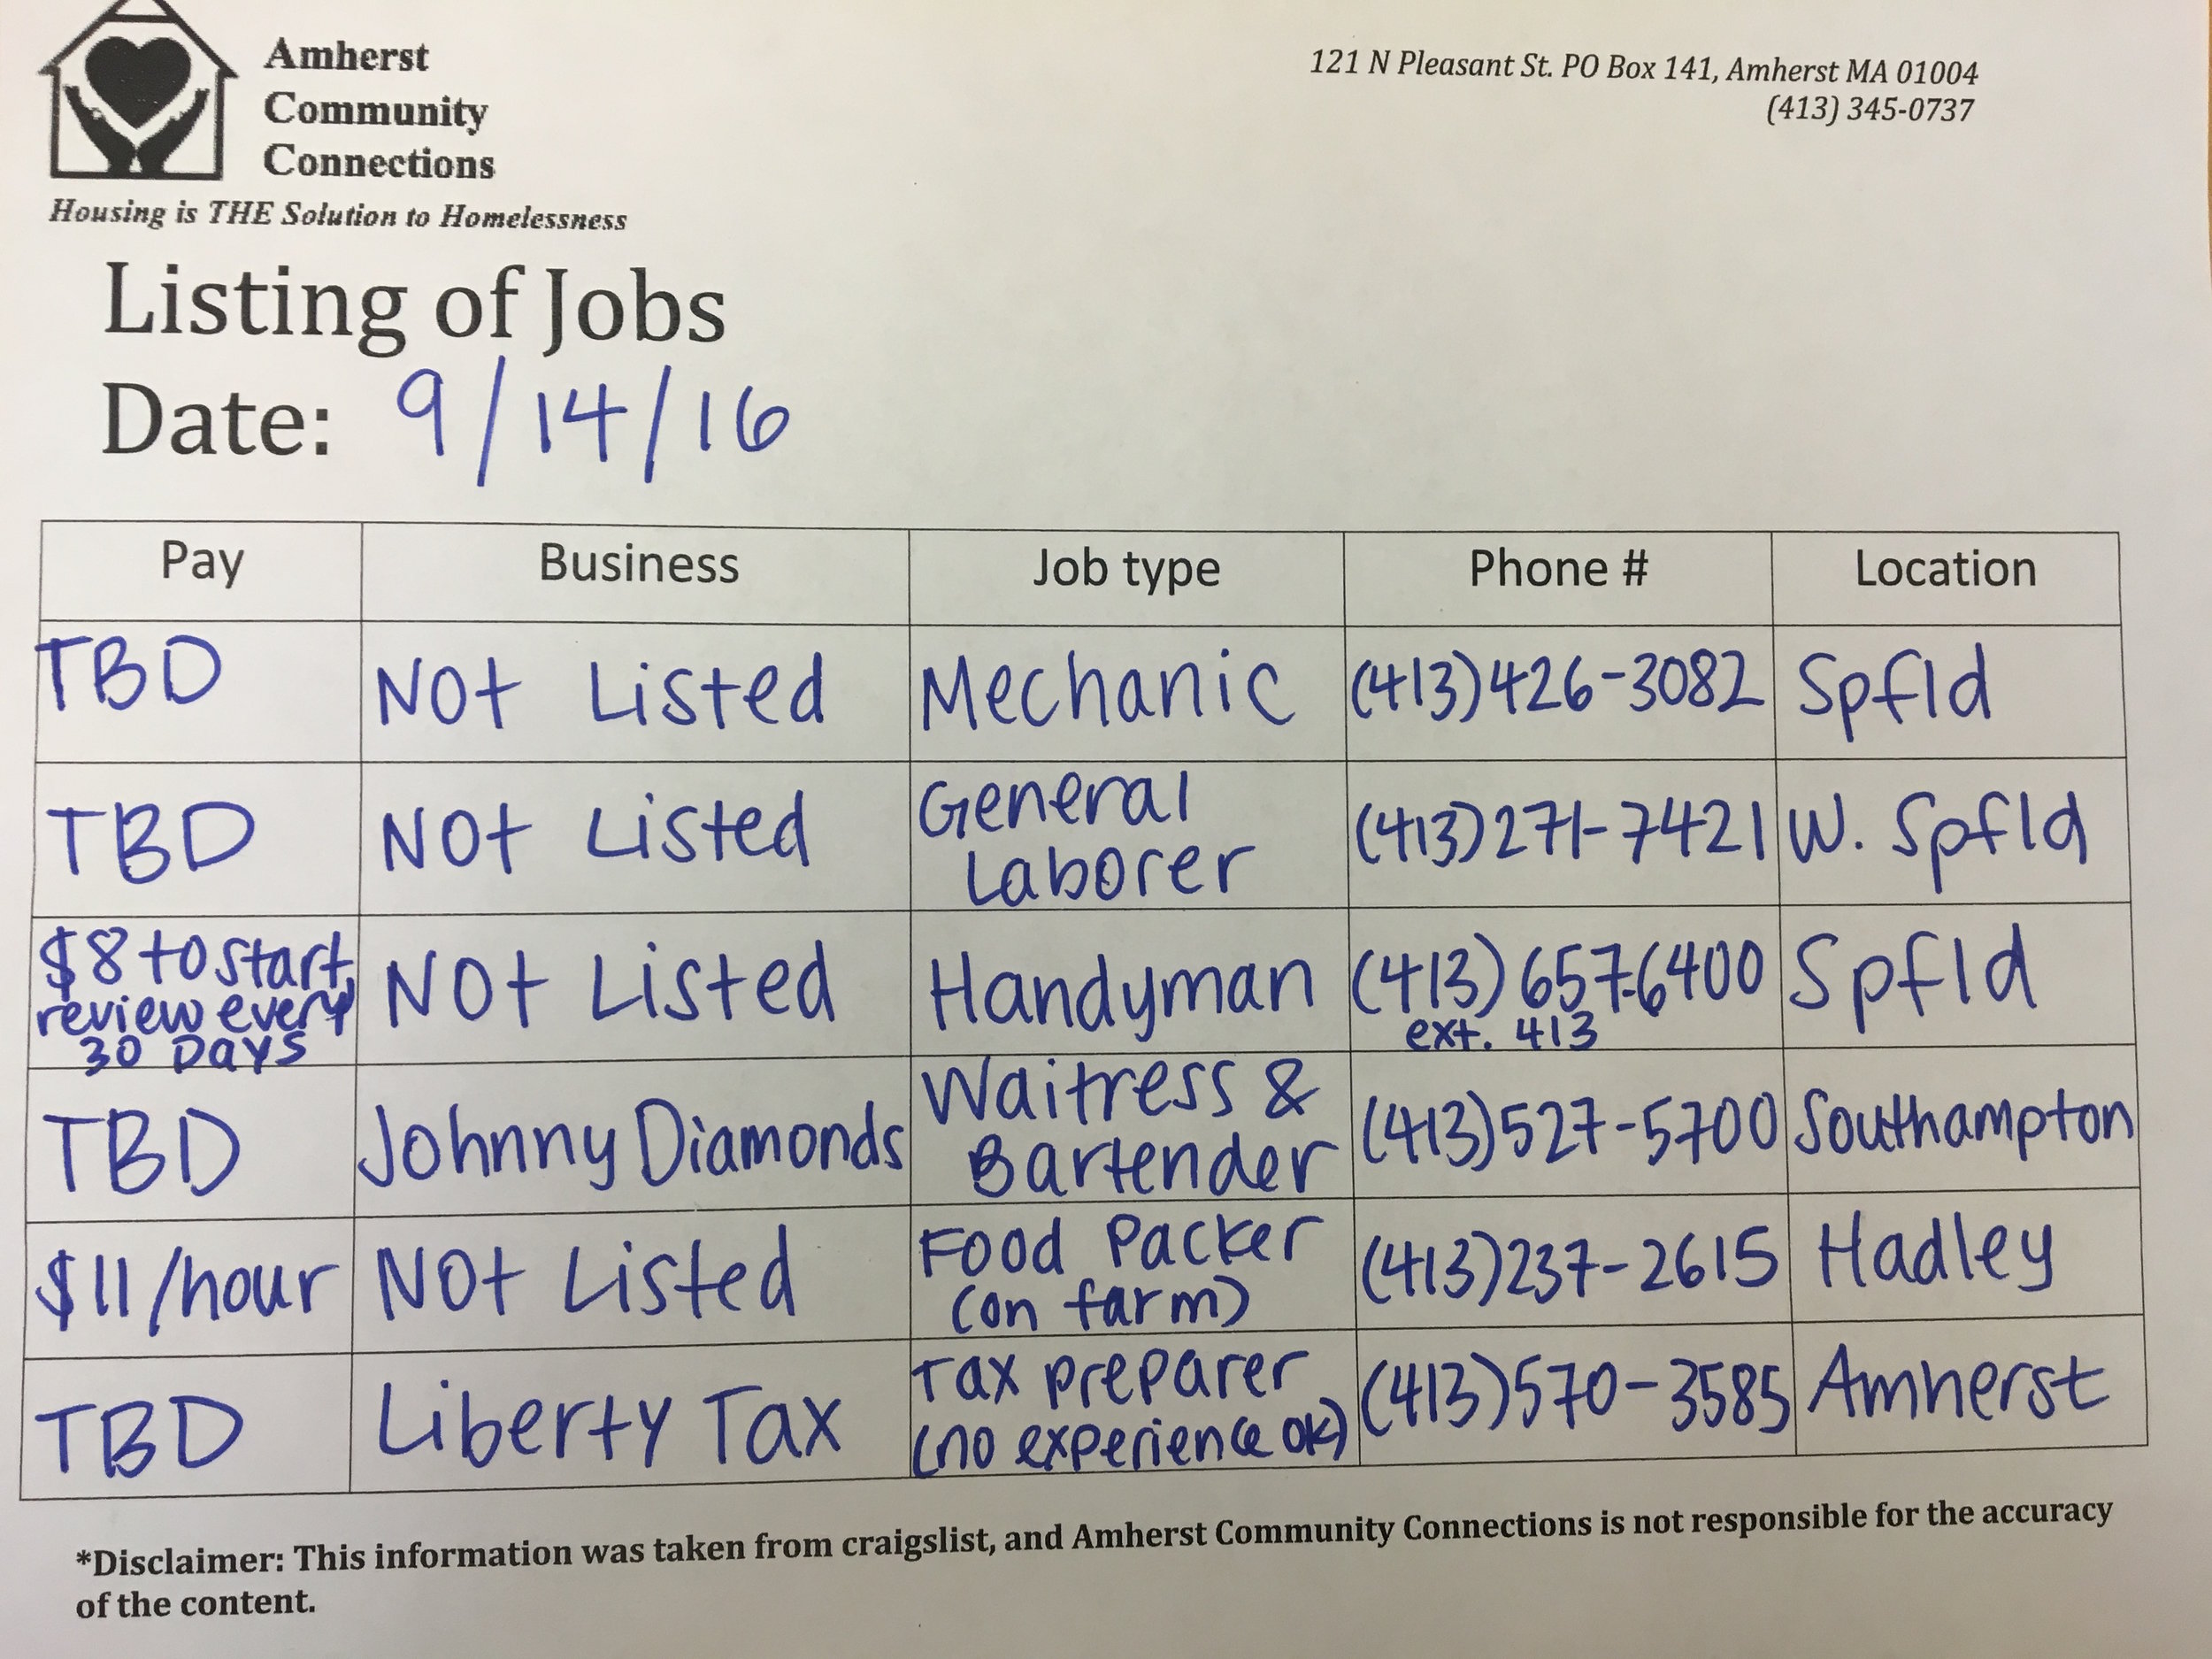 Amherst
Community
Connections
Housing is THE Solution to Homelessness
121 N Pleasant St. PO Box 141, Amherst MA 01004
(413) 345-0737
Listing of Jobs
Date: 9/14/16
Pay Business Job type Phone # Location
TBD Not Listed Mechanic (413)426-3082 Spfld
TBD Not Listed General
Laborer (413)271-7421 W. Spfld
$8 to start
review every
30 Days Not Listed Handyman (413)657-6400
ext. 413 Spfld
TBD Johnny Diamonds Waitress &
Bartender (413)527-5700 Southampton
$11/hour Not Listed Food Packer
(on farm) (413)237-2615 Hadley
TBD Liberty Tax Tax preparer
(no experience ok) (413)570-3585 Amherst
*Disclaimer: This information was taken from craigslist, and Amherst Community Connections is not responsible for the accuracy
of the content.